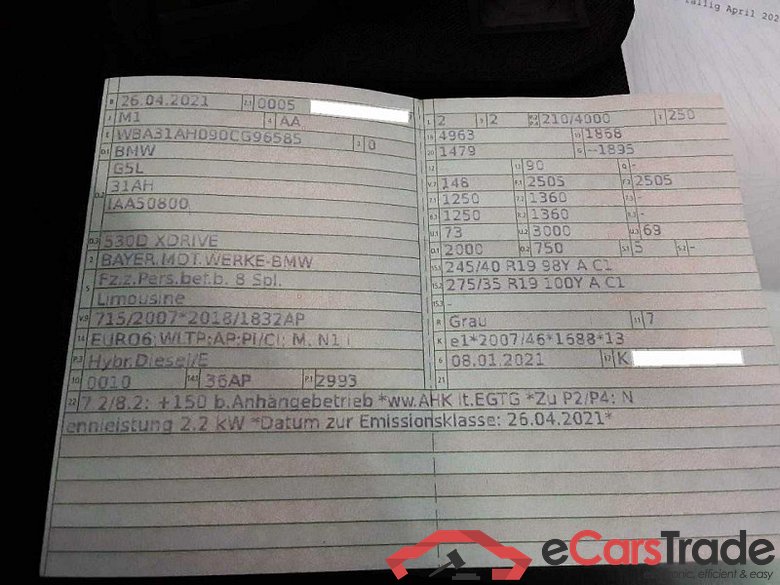 fällig April 202
B 26.04.2021 2.1 0005
J M1 4 AA
E WBA31AH090CG96585 3 0
D.1 BMW
D.2 G5L
31AH
IAA50800
D.3 530D XDRIVE
2 BAYER.MOT.WERKE-BMW
5 Fz.z.Pers.bef.b. 8 Spl.
Limousine
V.9 715/2007*2018/1832AP
14 EURO6;WLTP;AP;PI/CI; M, N1 I
P.3 Hybr.Diesel/E
10 0010 14.1 36AP P.1 2993
L 2 9 2 P.2 P.4 210/4000 T 250
18 4963 19 1868
20 1479 G ~1895
12 - 13 90 Q -
V.7 148 F.1 2505 F.2 2505
7.1 1250 7.2 1360 7.3 -
8.1 1250 8.2 1360 8.3 -
U.1 73 U.2 3000 U.3 69
O.1 2000 O.2 750 S.1 5 S.2 -
15.1 245/40 R19 98Y A C1
15.2 275/35 R19 100Y A C1
15.3 -
R Grau 11 7
K e1*2007/46*1688*13
6 08.01.2021 17 K
21
22 7.2/8.2: +150 b.Anhängebetrieb *ww.AHK lt.EGTG *Zu P2/P4: N
ennleistung 2.2 kW *Datum zur Emissionsklasse: 26.04.2021*
eCarsTrade
onic, efficient & easy